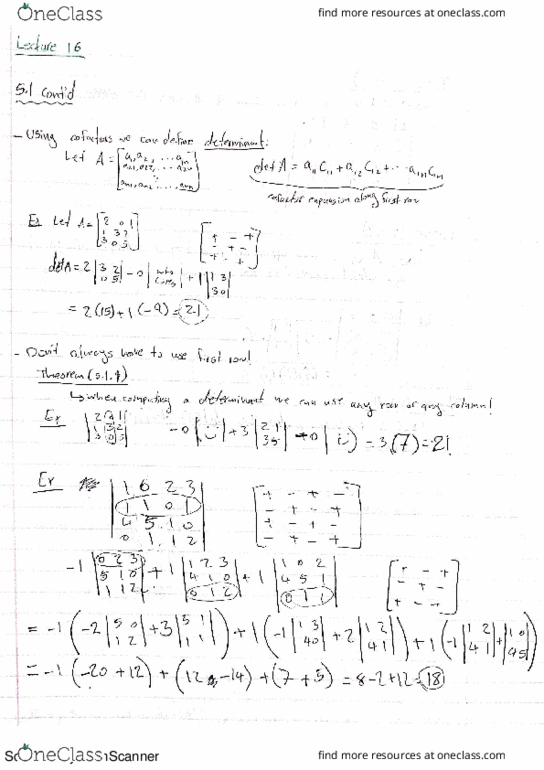 OneClass
find more resources at oneclass.com
Lecture 16
5.1 cont'd
- Using cofactors we can define determinant:
Let A = [a11 a12 ... a1n
a21 a22 ... a2n
an1 an2 ... ann]
det A = a11C11 + a12C12 + ... a1nC1n
cofactor expansion along first row
Ex Let A = [2 0 1
1 3 2
3 0 5]
[+ - +
- + -
+ - +]
det A = 2 |3 2
0 5| - 0 | who cares | + 1 |1 3
3 0|
= 2(15) + 1(-9) = 21
- Don't always have to use first row!
Theorem (5.1.1)
↳ when computing a determinant we can use any row or any column!
Ex |2 0 1
1 3 2
3 0 5| - 0 | | + 3 |2 1
3 5| - 0 | | = 3(7) = 21
Ex |1 0 2 3
1 1 0 1
4 5 1 0
0 1 1 2|
[+ - + -
- + - +
+ - + -
- + - +]
-1 |0 2 3
5 1 0
1 1 2| + 1 |1 2 3
4 1 0
0 1 2| + 1 |1 0 2
4 5 1
0 1 1|
[+ - +
- + -
+ - +]
= -1 (-2 |5 0
1 2| + 3 |5 1
1 1|) + 1 (-1 |1 3
4 0| + 2 |1 2
4 1|) + 1 (-1 |1 2
4 1| + |1 0
4 5|)
= -1 (-20 + 12) + (12 - 14) + (7 + 5) = 8 - 2 + 12 = 18
OneClass
Scanner
find more resources at oneclass.com